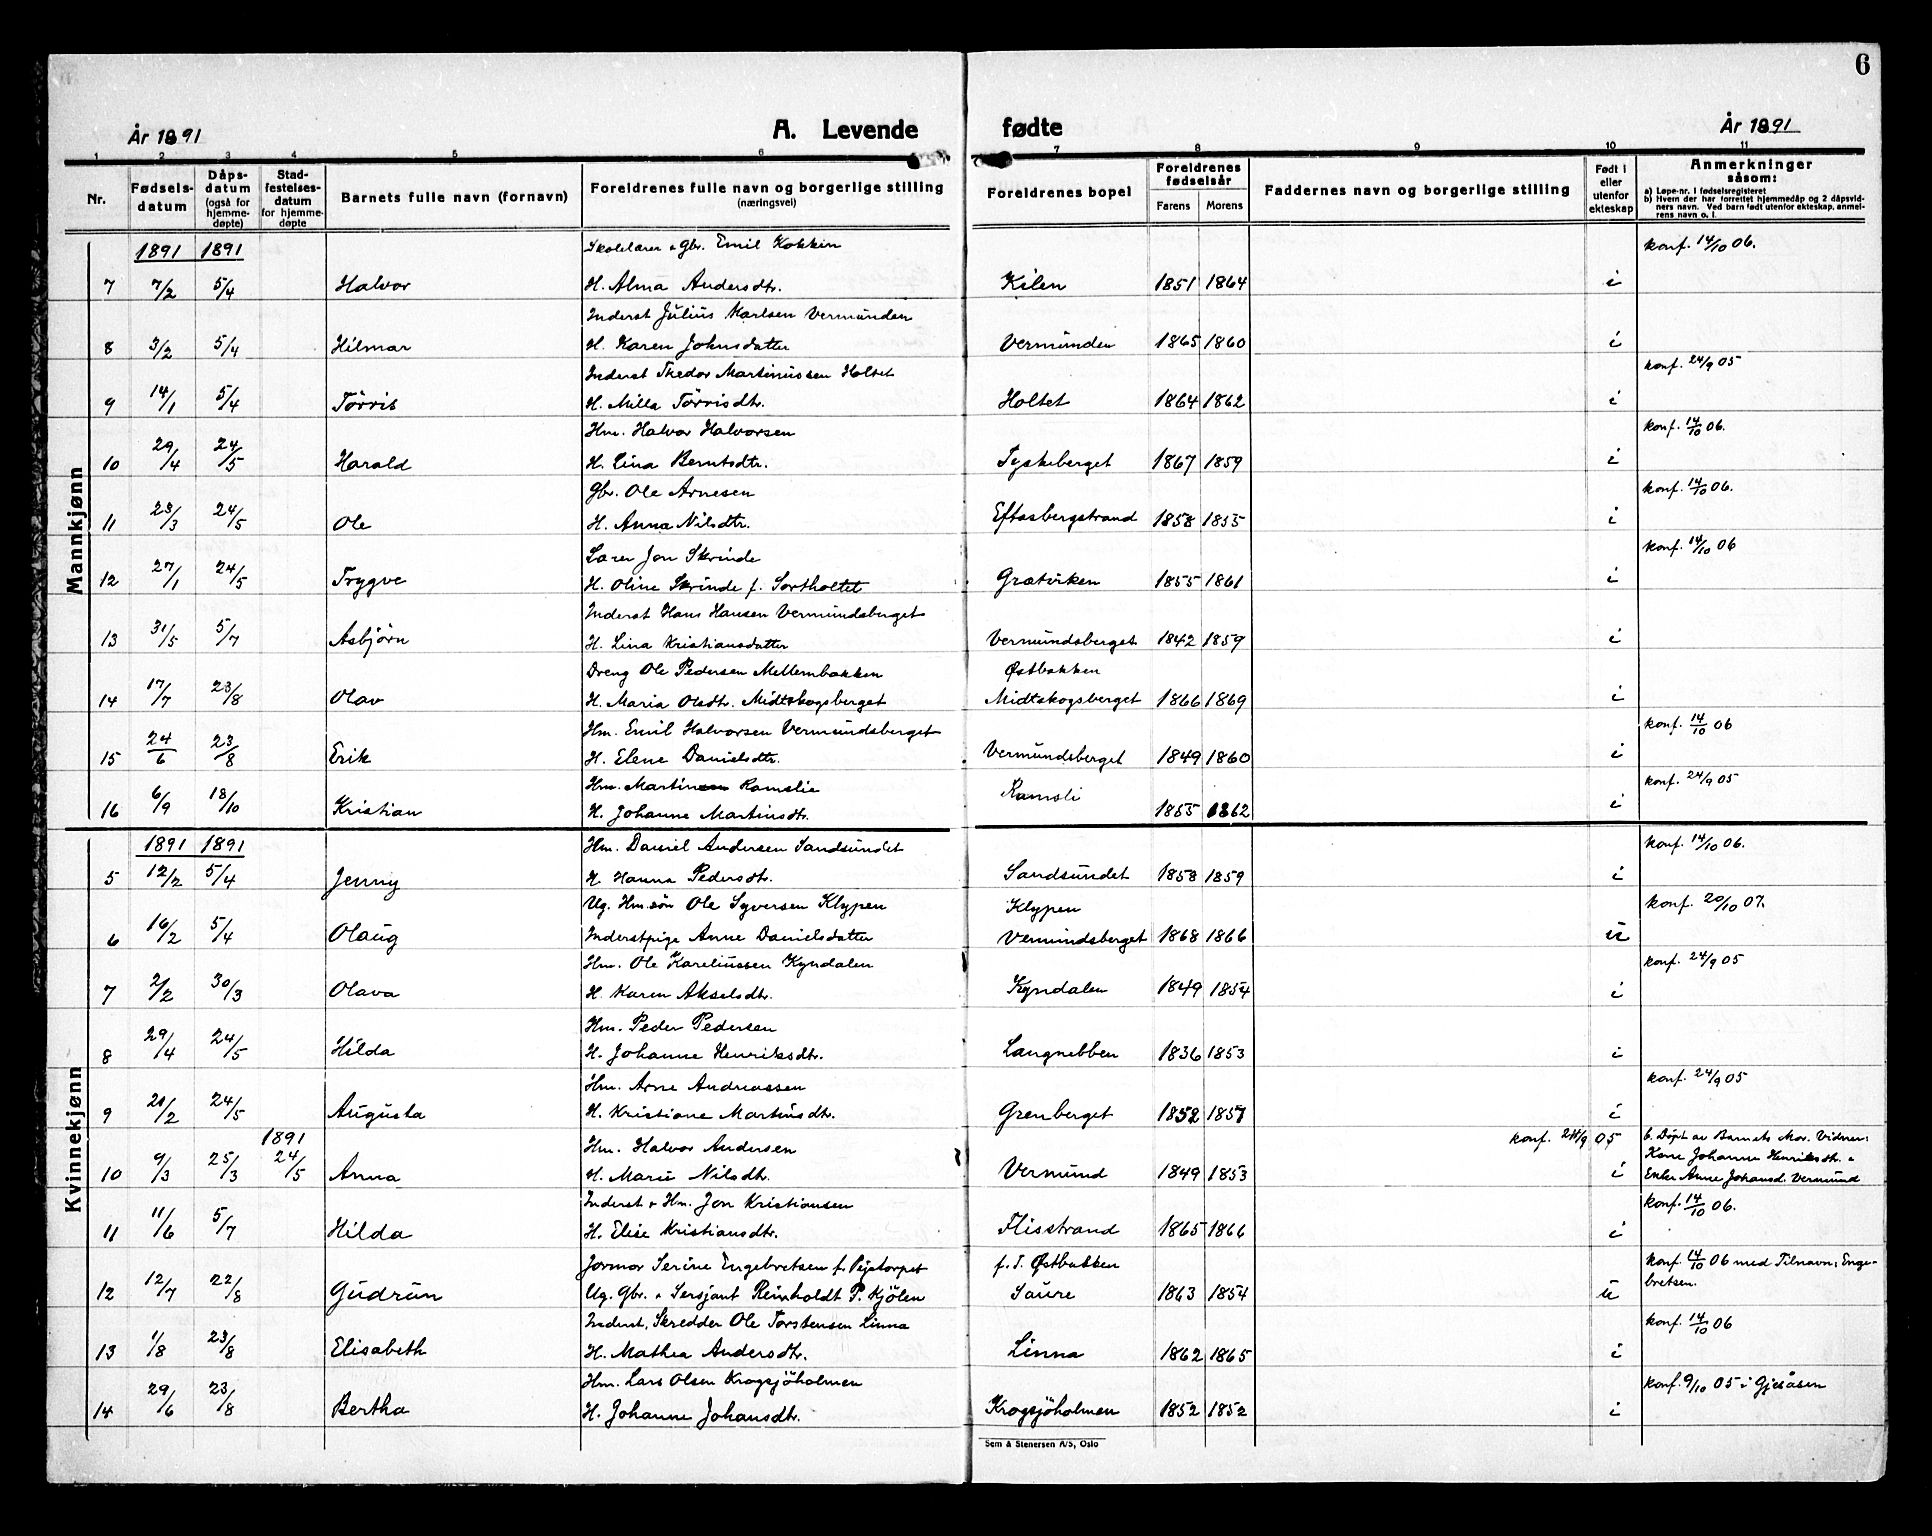 6
År 1891 A. Levende fødte År 1891
1 2 3 4 5 6 7 8 9 10 11
Nr. Fødselsdatum Dåpsdatum (også for hjemmedøpte) Stadfestelsesdatum for hjemmedøpte Barnets fulle navn (fornavn) Foreldrenes fulle navn og borgerlige stilling (næringsvei) Foreldrenes bopel Foreldrenes fødselsår Farens Morens Faddernes navn og borgerlige stilling Født i eller utenfor ekteskap Anmerkninger såsom:
a) Løpe-nr. i fødselsregisteret
b) Hvem der har forrettet hjemmedåp og 2 dåpsvidners navn. Ved barn født utenfor ekteskap, anmelderens navn o. l.
Mannkjønn
1891 1891 Skolelærer & Gbr. Emil Kokkin konf. 14/10 06.
7 7/2 5/4 Halvor H. Alma Andersdtr. Kilen 1851 1864 i
Inderst Julius Karlsen Vermunden
8 3/2 5/4 Hilmar H. Karen Johnsdatter Vermunden 1865 1860 i
Inderst Tkedor Martinussen Holtet konf. 24/9 05
9 14/1 5/4 Törris H. Milla Törrisdtr. Holtet 1864 1862 i
Hm. Halvor Halvorsen konf. 14/10 06.
10 29/4 24/5 Harald H. Lina Berntsdtr. Tyskeberget 1867 1859 i
Gbr. Ole Arnesen konf. 14/10 06.
11 23/3 24/5 Ole H. Anna Nilsdtr. Eftasbergstrand 1858 1855 i
Lærer Jon Skrinde konf. 14/10 06
12 27/1 24/5 Trygve H. Oline Skrinde f. Sortholtet Grætvirken 1855 1861 i
Inderst Hans Hansen Vermundsberget
13 31/5 5/7 Asbjörn H. Lina Kristiansdatter Vermundsberget 1842 1859 i
Dreng Ole Pedersen Mellembakken Østbakken
14 17/7 23/8 Olav H. Maria Olsdtr. Midtskogsberget Midtskogsberget 1866 1869 i
Hm. Emil Halvorsen Vermundsberget konf. 14/10 06
15 24/6 23/8 Erik H. Elene Danielsdtr. Vermundsberget 1849 1860 i
Hm. Martin Ramslie konf. 24/9 05
16 6/9 18/10 Kristian H. Johanne Martinsdtr. Ramsli 1855 1862 i
Kvinnekjønn
1891 1891 Hm. Daniel Andersen Sandsundet konf. 14/10 06.
5 12/2 5/4 Jenny H Hanna Pedersdtr. Sandsundet 1858 1859 i
Ug. Hm.sön Ole Syversen Klypen Klypen konf. 20/10 07.
6 16/2 5/4 Olaug Inderstpige Anne Danielsdatter Vermundsberget 1868 1866 u
Hm. Ole Kareliussen Kyndalen konf. 24/9 05
7 2/2 30/3 Olava H. Karen Akselsdtr. Kyndalen 1849 1854 i
Hm. Peder Pedersen
8 29/4 24/5 Hilda H. Johanne Henriksdtr. Langnebben 1836 1853 i
Hm. Arne Andreassen konf. 24/9 05
9 21/2 24/5 Augusta H. Kristiane Martinsdtr. Grenberget 1852 1857 i
1891 Hm. Halvor Andersen konf. 24/9 05 b. Döpt av Barnets Mor. Vidner:
Kone Johanne Henriksdtr. &
10 9/3 25/3 24/5 Anna H. Marie Nilsdtr. Vermund 1849 1853 i Enke Anne Johansd. Vermund
Inderst & Hm. Jon Kristiansen konf. 14/10 06.
11 11/6 5/7 Hilda H. Elise Kristiansdtr. Flisstrand 1865 1866 i
Jormor Serine Engebretsen f. Pejstorpet f. T. Østbakken konf. 14/10 06 med Tilnavn: Engebretsen.
12 12/7 22/8 Gudrun Ug. Gbr. & Sersjant Reinholdt P. Kjölen Saure 1863 1854 u
Inderst, Skredder Ole Torstensen Linna konf. 14/10 06
13 1/8 23/8 Elisabeth H. Mathea Andersdtr. Linna 1862 1865 i
Hm. Lars Olsen Krogsjöholmen konf. 9/10 05 i Gjesåsen
14 29/6 23/8 Bertha H. Johanne Johansdtr. Krogsjöholmen 1852 1852 i
Sem & Stenersen A/S, Oslo